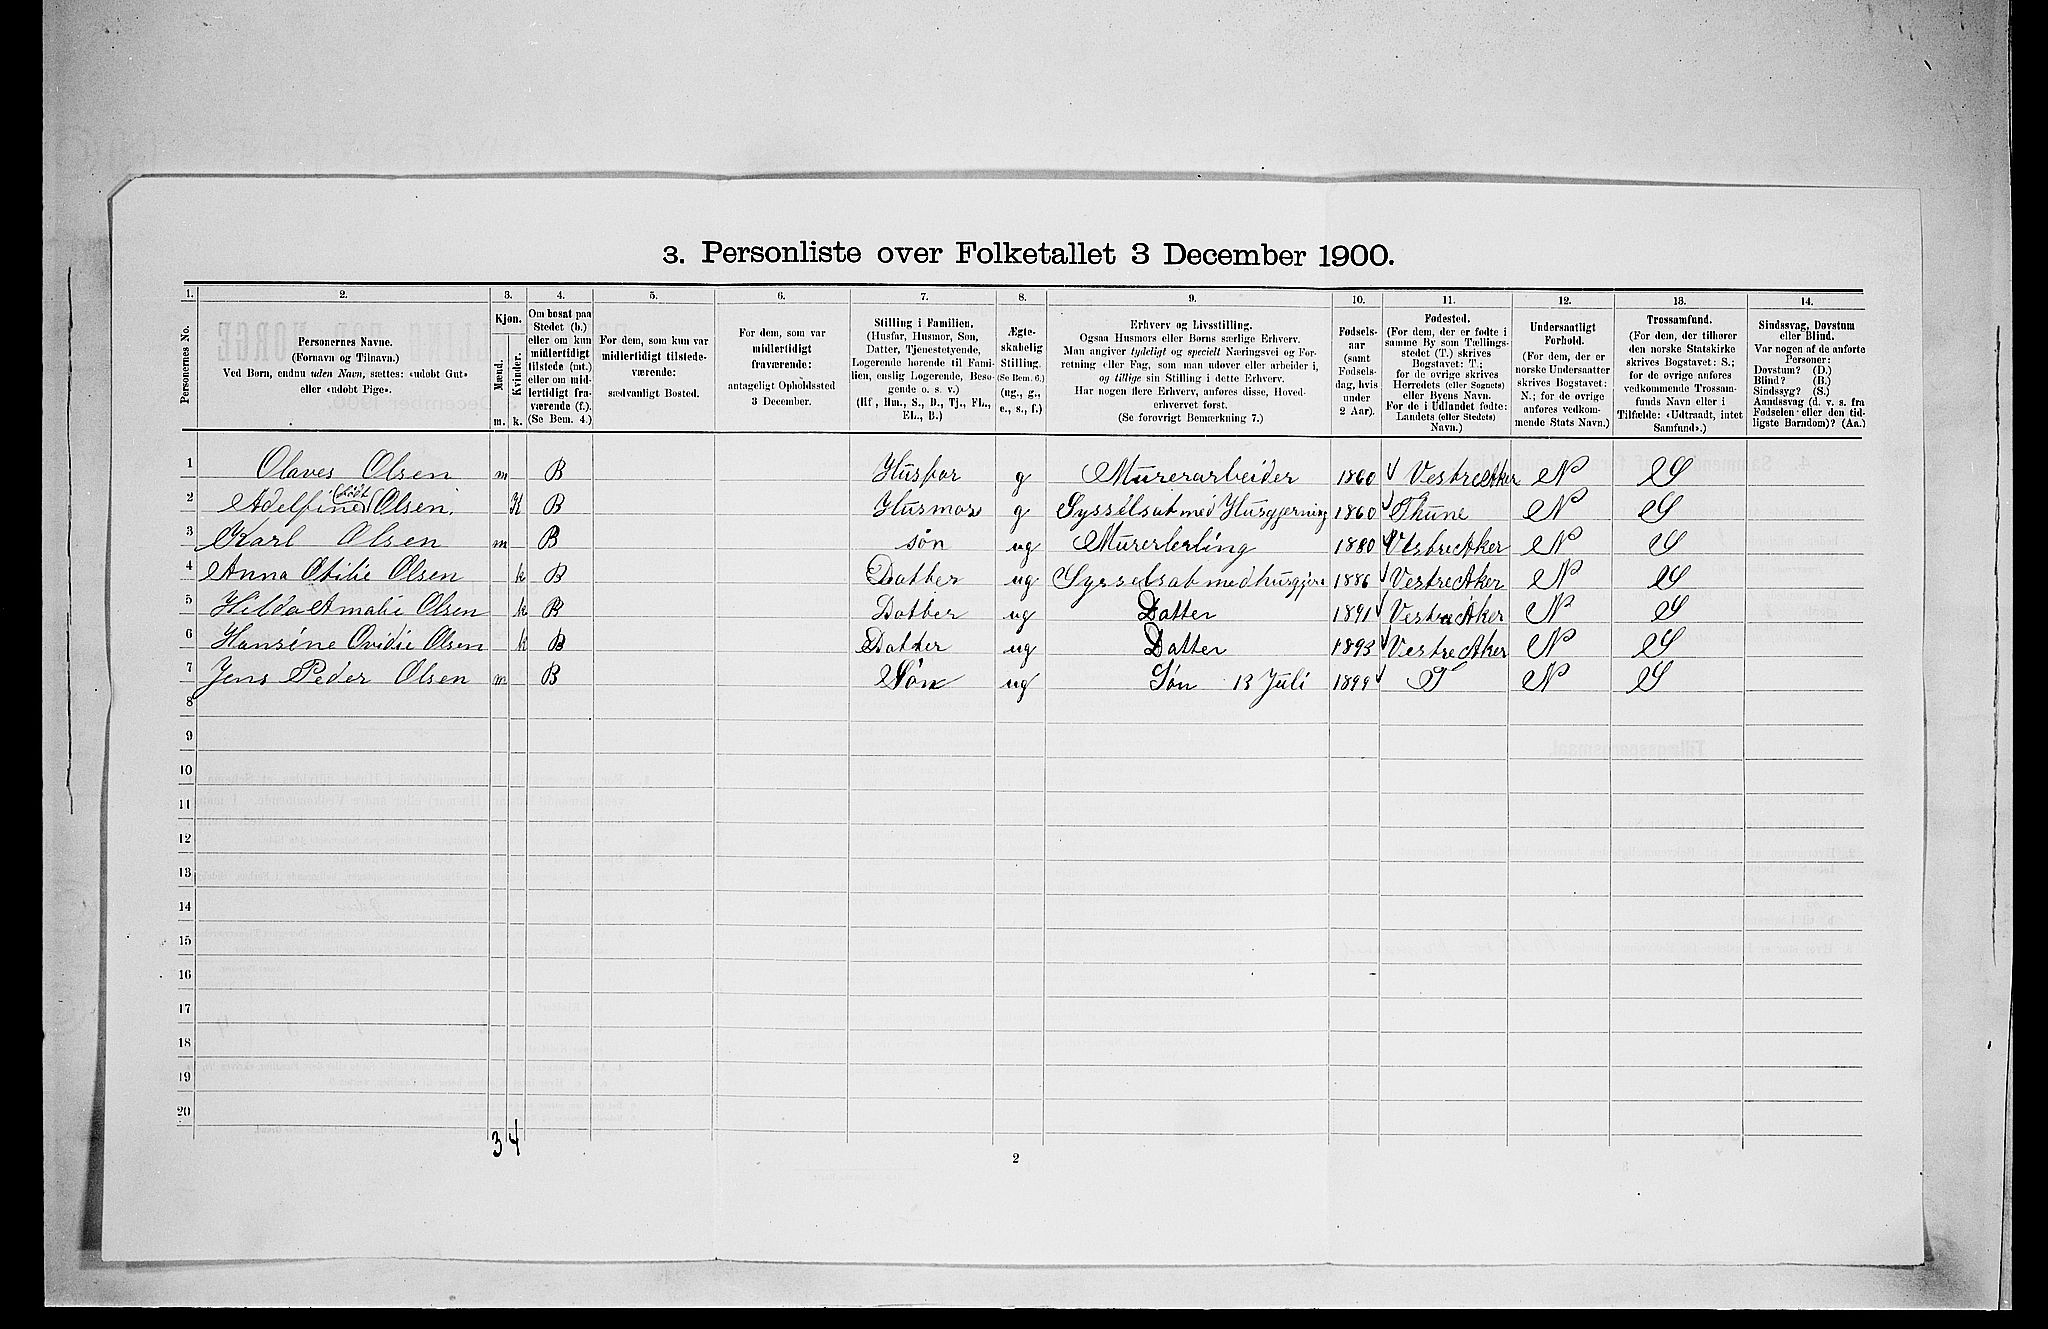 3. Personliste over Folketallet 3 December 1900.
1. 2. 3. 4. 5. 6. 7. 8. 9. 10. 11. 12. 13. 14.
Personernes No.
Personernes Navne.
(Fornavn og Tilnavn.)
Ved Børn, endnu uden Navn, sættes: «udøbt Gut»
eller «udøbt Pige».
Kjøn.
Mænd. Kvinder.
m. k.
Om bosat paa
Stedet (b.)
eller om kun
midlertidigt
tilstede (mt.)
eller om mid-
lertidigt fra-
værende (f.).
(Se Bem. 4.)
For dem, som kun var
midlertidigt tilstede-
værende:
sædvanligt Bosted.
For dem, som var
midlertidigt
fraværende:
antageligt Opholdssted
3 December.
Stilling i Familien.
(Husfar, Husmor, Søn,
Datter, Tjenestetyende,
Logerende hørende til Fami-
lien, enslig Logerende, Besø-
gende o. s. v.)
(Hf., Hm., S., D., Tj., FL.,
EL., B.)
Ægte-
skabelig
Stilling.
(Se Bem. 6.)
(ug., g.,
e., s., f.)
Erhverv og Livsstilling.
Ogsaa Husmors eller Børns særlige Erhverv.
Man angiver tydeligt og specielt Næringsvei og For-
retning eller Fag, som man udøver eller arbeider i,
og tillige sin Stilling i dette Erhverv.
Har nogen flere Erhverv, anføres disse, Hoved-
erhvervet først.
(Se forøvrigt Bemærkning 7.)
Fødsels-
aar
(samt
Fødsels-
dag, hvis
under
2 Aar).
Fødested.
(For dem, der er fødte i
samme By som Tællings-
stedet (T.) skrives
Bogstavet: T.;
for de øvrige skrives
Herredets (eller Sognets)
eller Byens Navn.
For de i Udlandet fødte:
Landets (eller Stedets)
Navn.)
Undersaatligt
Forhold.
(For dem, der er
norske Undersaatter
skrives Bogstavet:
N.; for de øvrige
anføres vedkom-
mende Stats Navn.)
Trossamfund.
(For dem, der tilhører
den norske Statskirke
skrives Bogstavet: S.;
for de øvrige anføres
vedkommende Trossam-
funds Navn eller i
Tilfælde: «Udtraadt, intet
Samfund».)
Sindssvag, Døvstum
eller Blind.
Var nogen af de anførte
Personer:
Døvstum? (D.)
Blind? (B.)
Sindssyg? (S.)
Aandssvag (d. v. s. fra
Fødselen eller den tid-
ligste Barndom)? (Aa.)
1 Olaves Olsen m B Husfar g Murerarbeider 1860 Vestre Aker N S
2 Adelfine (født Olsen) K B Husmor g Sysselsat med Husgjerning 1860 Thune N S
3 Karl Olsen m B søn ug Murerlerling 1880 Vestre Aker N S
4 Anna Otilie Olsen k B Datter ug Sysselsat med husgjern 1886 Vestre Aker N S
5 Hilda Amalie Olsen k B Datter ug Datter 1891 Vestre Aker N S
6 Hansine Ovidie Olsen k B Datter ug Datter 1893 Vestre Aker N S
7 Jens Peder Olsen m B Søn ug Søn 13 Juli 1899 T N S
8
9
10
11
12
13
14
15
16
17
18
19
20
3 4
2